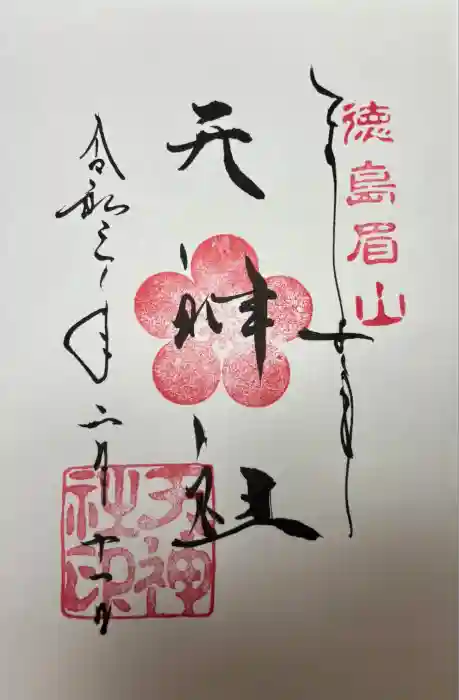 徳島眉山
奉拝
天神社
令和三年二月十一日
天神
社印